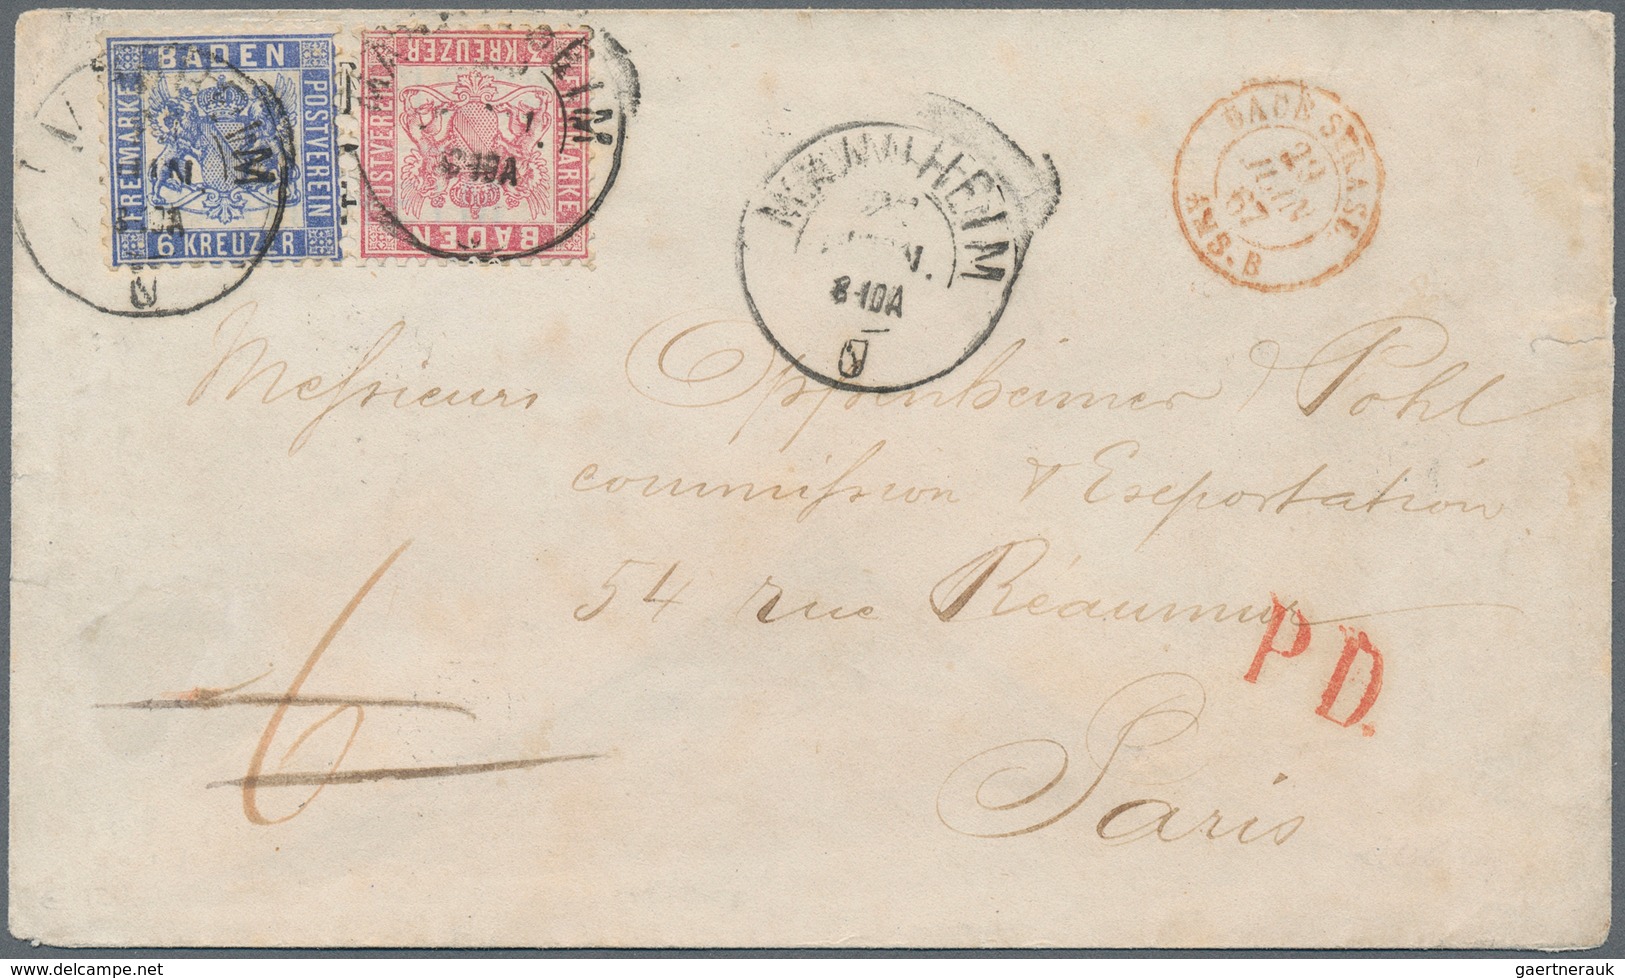 BADEN
FREIMARKE
POSTVEREIN
6 KREUZER
3 KREUZER
POSTVEREIN
FREIMARKE
BADEN
8-10A
MANNHEIM
JUN.
8-10A
BADE STRASB.
29
JUIN
67
AMB. B
Messieurs Oppenheimer & Pohl
commission & Exportation
54 rue Réaumur
Paris
P.D.
6
gaertnerauk